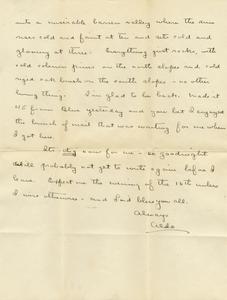 into a miserable barren valley where the sun
rises cold and faint at ten and sets cold and
gloaming at three. Everything just rocks, with
cold solemn firs on the north slopes and cold
oak brush on the south slopes - no other
living thing. I'm glad to be back. Made it
from Blue yesterday and you bet I enjoyed
the bunch of mail that was waiting for me when
I got here.
It's now for me - so goodnight
Will probably not get to write again before I
leave. Expect me the evening of the 18th unless
I wire otherwise - and Lord bless you all.
Always
Aldo